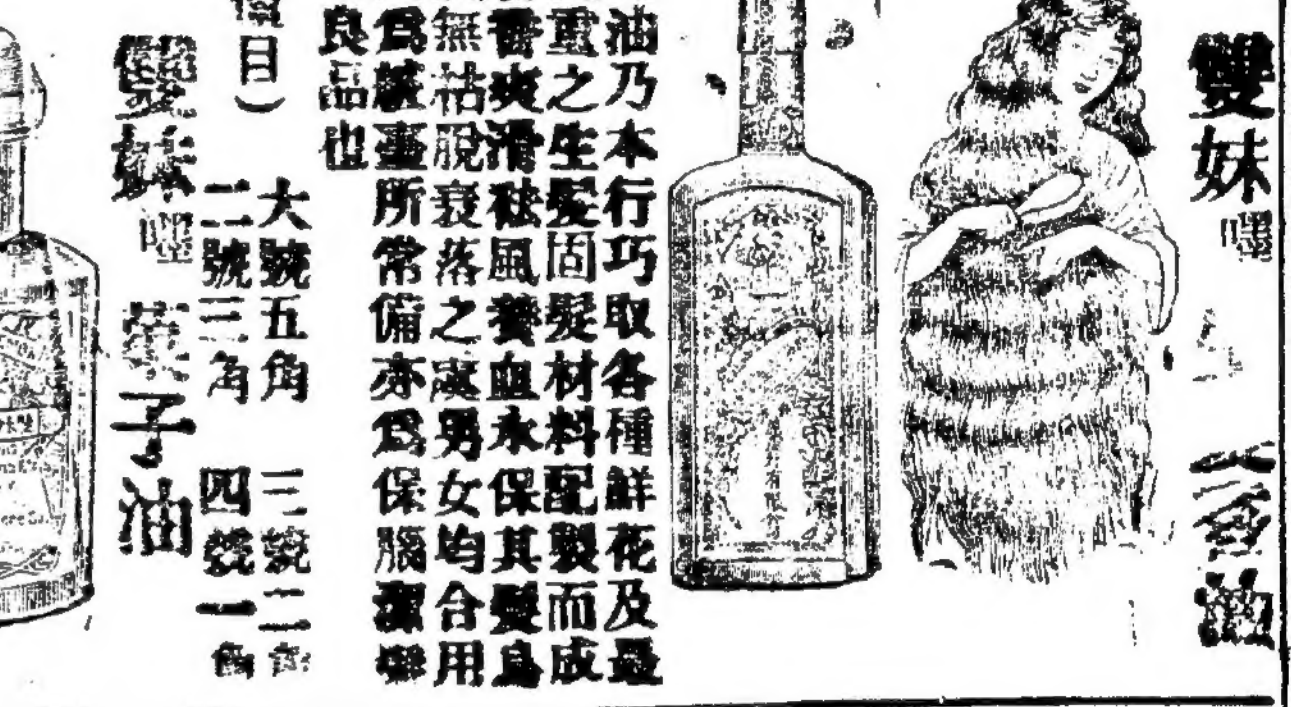 雙妹嚜 油
油乃本行巧取各種鮮花及最
重之生髮固髮材料配製而成
香爽滑祛風養血永保其髮烏
無枯脫衰落之虞男女均合用
爲粧臺所常備亦爲保腦潔
良品也
目）
大號五角 三號二角
二號三角 四號一角
雙妹嚜 子油